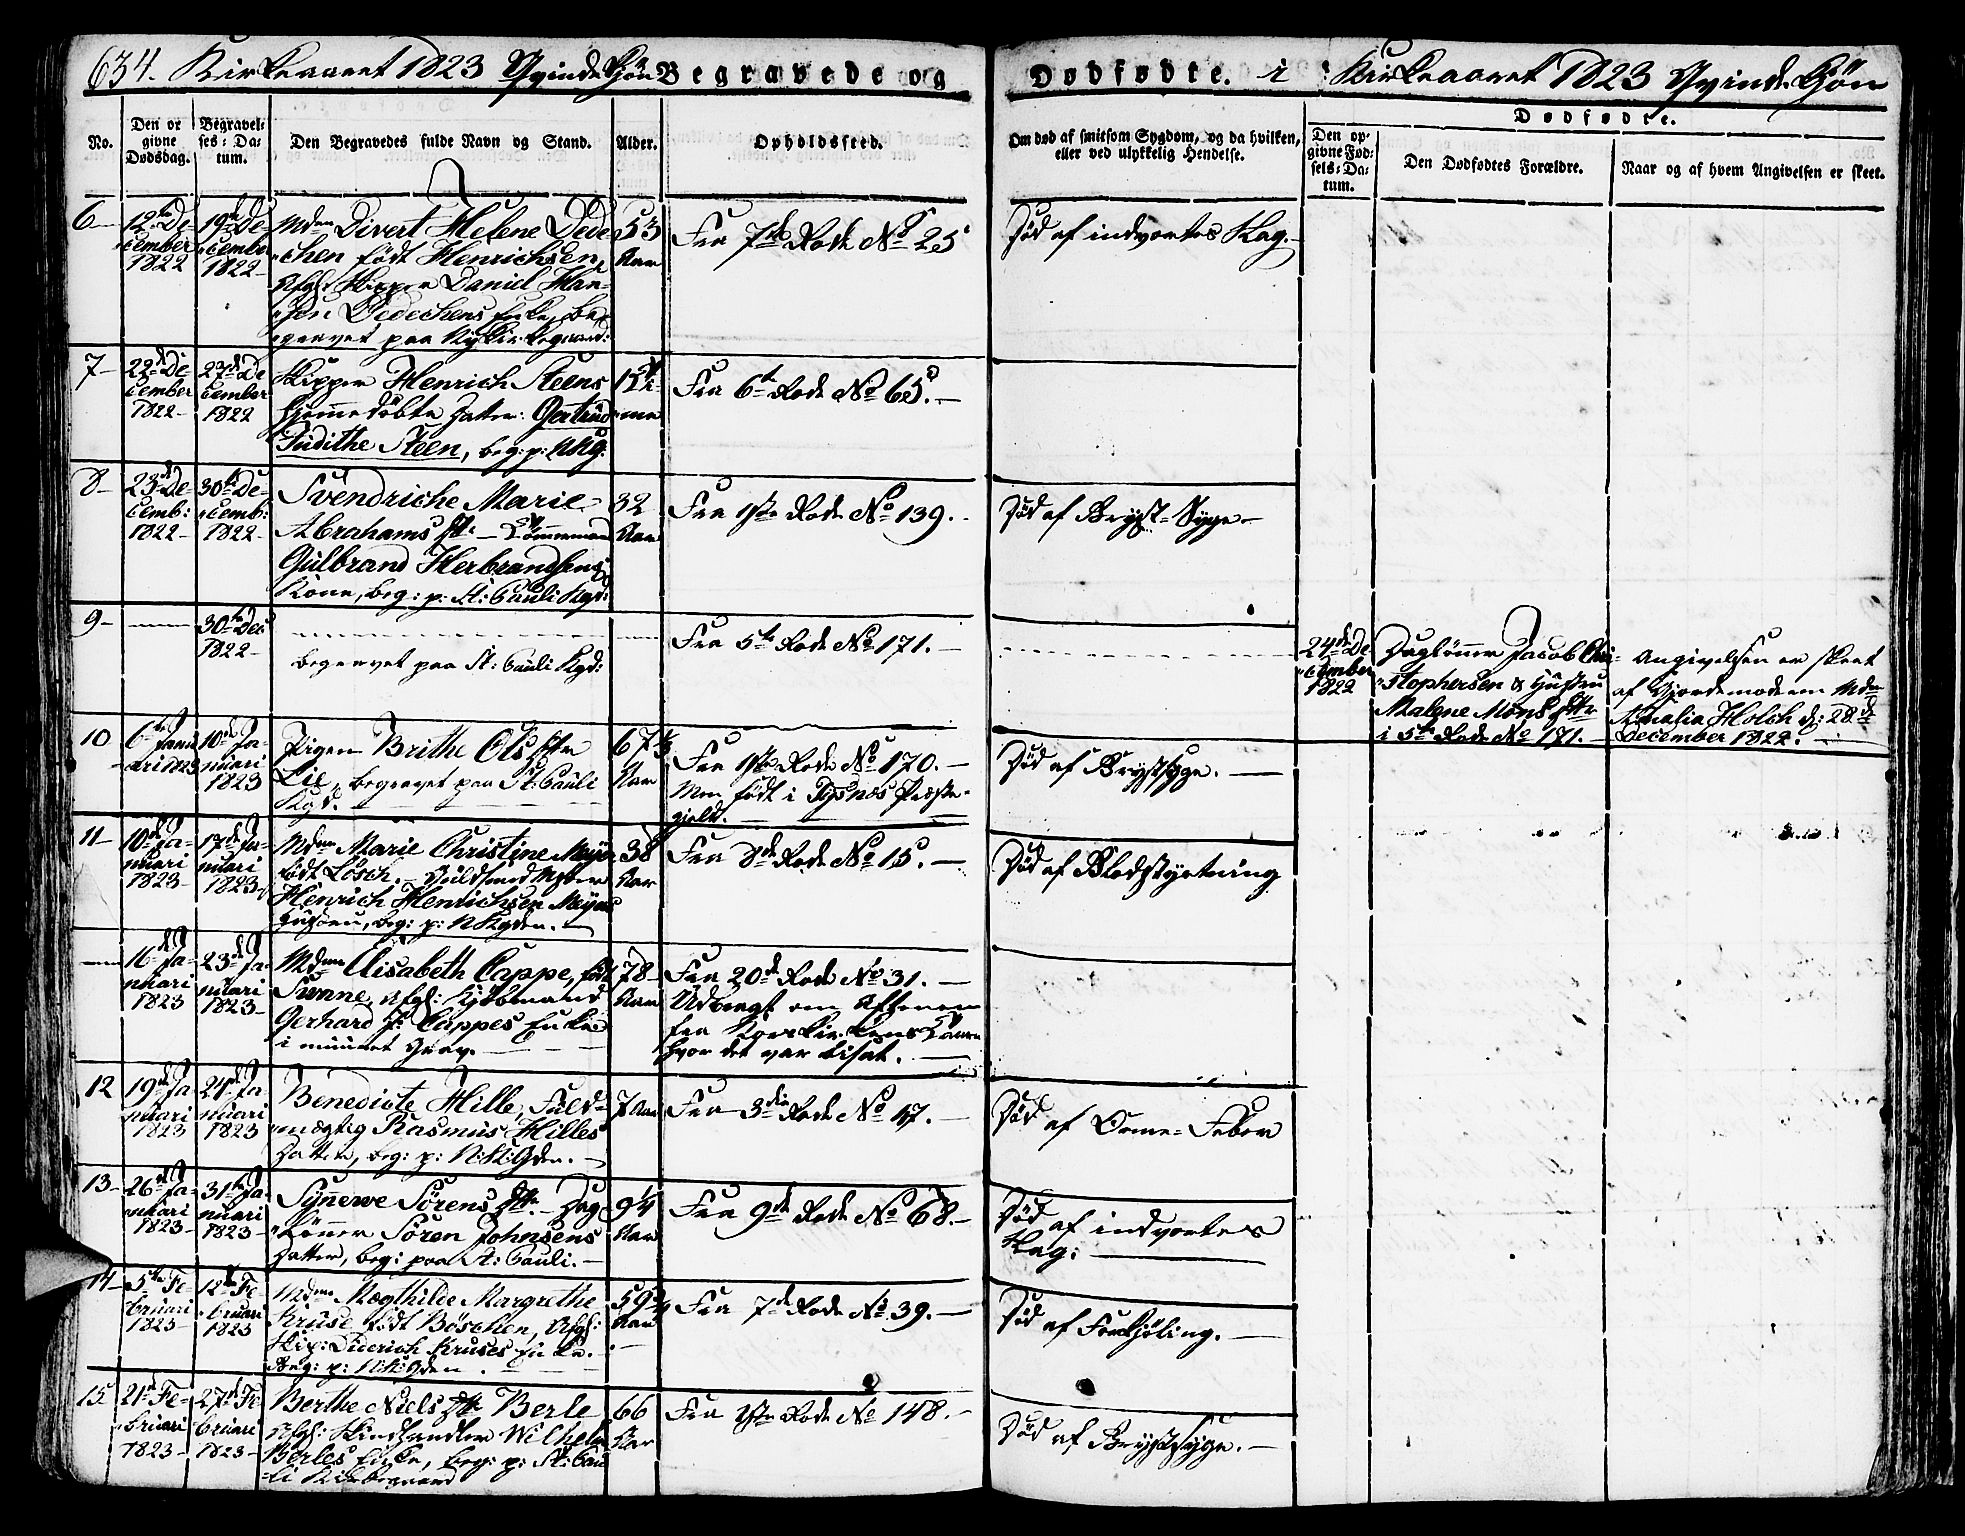 634. Kirkeaaret 1823 Qvindekjön Begravede og Dødfødte. i Kirkeaaret 1823 Qvindekjön
No.
Den op
givne
Dødsdag.
Begravel=
ses=Da=
tum.
Den Begravedes fulde Navn og Stand.
Alder.
Opholdssted.
Om død af smitsom Sygdom, og da hvilken,
eller ved ulykkelig Hendelse.
Dødfødte.
Den op=
givne Fød=
sels=Da=
tum.
Den Dødfødtes Forældre.
Naar og af hvem Angivelsen er skeet.
6
12te De-
cember
1822
19de De
cember
1822
Mdme Divert Helene Dede
chen født Henrichsen,
Afgl: Skipper Daniel Han-
sen Dedechens Enke, be
gravet paa Nykirkegaard:
53
Aar
Fra 7de Rode No 25
Død af indvortes Slag.
7
22de De
cember
1822
27de De
cember
1822
Skipper Henrich Steens
hjemmedøbte Datter: Gertrud
Judithe Steen, beg: p: NKg.
Fra 6te Rode No 65.
8
23de De-
cemb:
1822
30te De-
cemb:
1822
Svendriche Marie
Abrahams Dtr: Tömmermand
Gulbrand Herbrandsens
Kone, beg: p: St: Pauli Kgd:
32
Aar
Fra 1ste Rode No 139.
Død af Bryst-Syge
9
30te Dec
1822
begravet paa St: Pauli Kgd:
Fra 5te Rode No 171.
24de De
cember
1822
Daglönner Jacob Chri-
stophersen & Hustru
Malene Mons Dtr
i 5te Rode No 171.
Angivelsen er skeet
af Gjordemoderen Mdme
Amalia Holch d: 28de
December 1822.
10
6te Janu
ari 1823
10de Ja-
nuari
1823
Pigen Brithe Ols Dtr
Lie, begravet paa St: Pauli
Kgd.
67 1/2
Aar
Fra 1ste Rode No 170.
Men født i Tysnæs Præste-
gield.
Død af Brystsyge.
11
10de Ja-
nuari
1823
17de Ja-
nuari
1823
Mdme Marie Christine Meyer
født Losch. Guldsmed Mester
Henrich Henrichsen Meyers
Hustru, beg: p: NKgden.
38
Aar
Fra 8de Rode No 15.
Død af Blodstyrtning
16de Ja-
nuari
1823
23de Ja-
nuari
1823
Mdme Elisabeth Cappe, født
Sunne, Afgl: Kjöbmand
Gerhard J: Cappes Enke
i muuret Grav.
78
Aar
Fra 20de Rode No 31.
Udbragt om Aftenen
fra Korskirkens Taarn
hvor det var bisat.
12
19de Ja
nuari
1823
24de Ja
nuari
1823
Benedicte Hille, Fuld-
mægtig Rasmus Hilles
Datter, beg: p: N:K:Gden.
7 Aar
Fra 3die Rode No 47.
Død af Orme-Feber
13
26de Ja-
nuari
1823
31te Ja-
nuari
1823
Synneve Sörens Dtr. Dag
lönner Sören Johnsens
Datter, beg: paa St: Pauli.
9 1/4
Aar
Fra 9de Rode No 68.
Død af indvortes
Slag:
14
5te Fe-
bruari
1823
12te Fe
bruari
1823
Mdme Mægthilde Margrethe
Kruse født Böschen, Afgl:
Skip: Diderich Kruses Enke.
Beg: p: N:K:Gden.
59
Aar
Fra 7de Rode No 39.
Død af Forkjöling.
15
21de Fe-
bruari
1823
27de Fe
bruari
1823
Berthe Niels Dtr Berle
Afgl: Skindhandler Wilhelm
Berles Enke, beg: p: St: Pau
li Kirkegaard
66
Aar
Fra 1ste Rode No 148.
Død af Brystsyge.